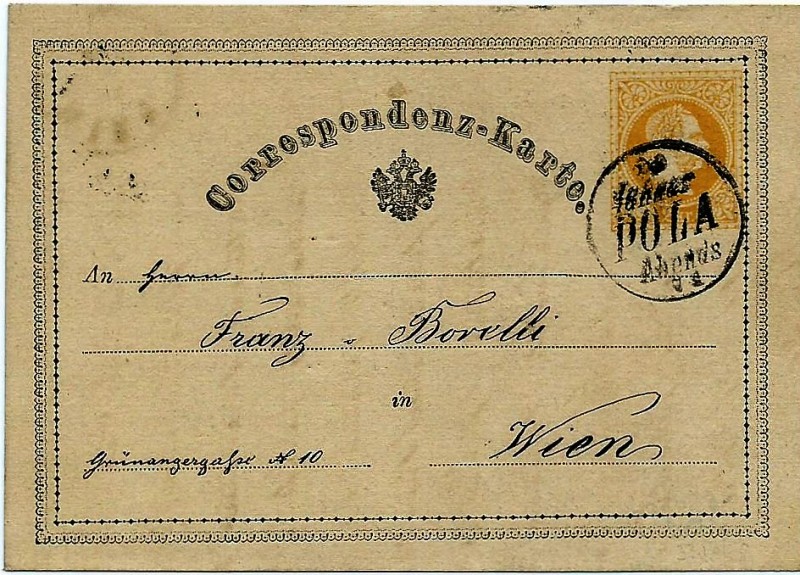 Correspondenz-Karte.
Jänner
POLA
Abends
An Herrn
Franz v Borelli
in
Wien
Grünangergaße № 10